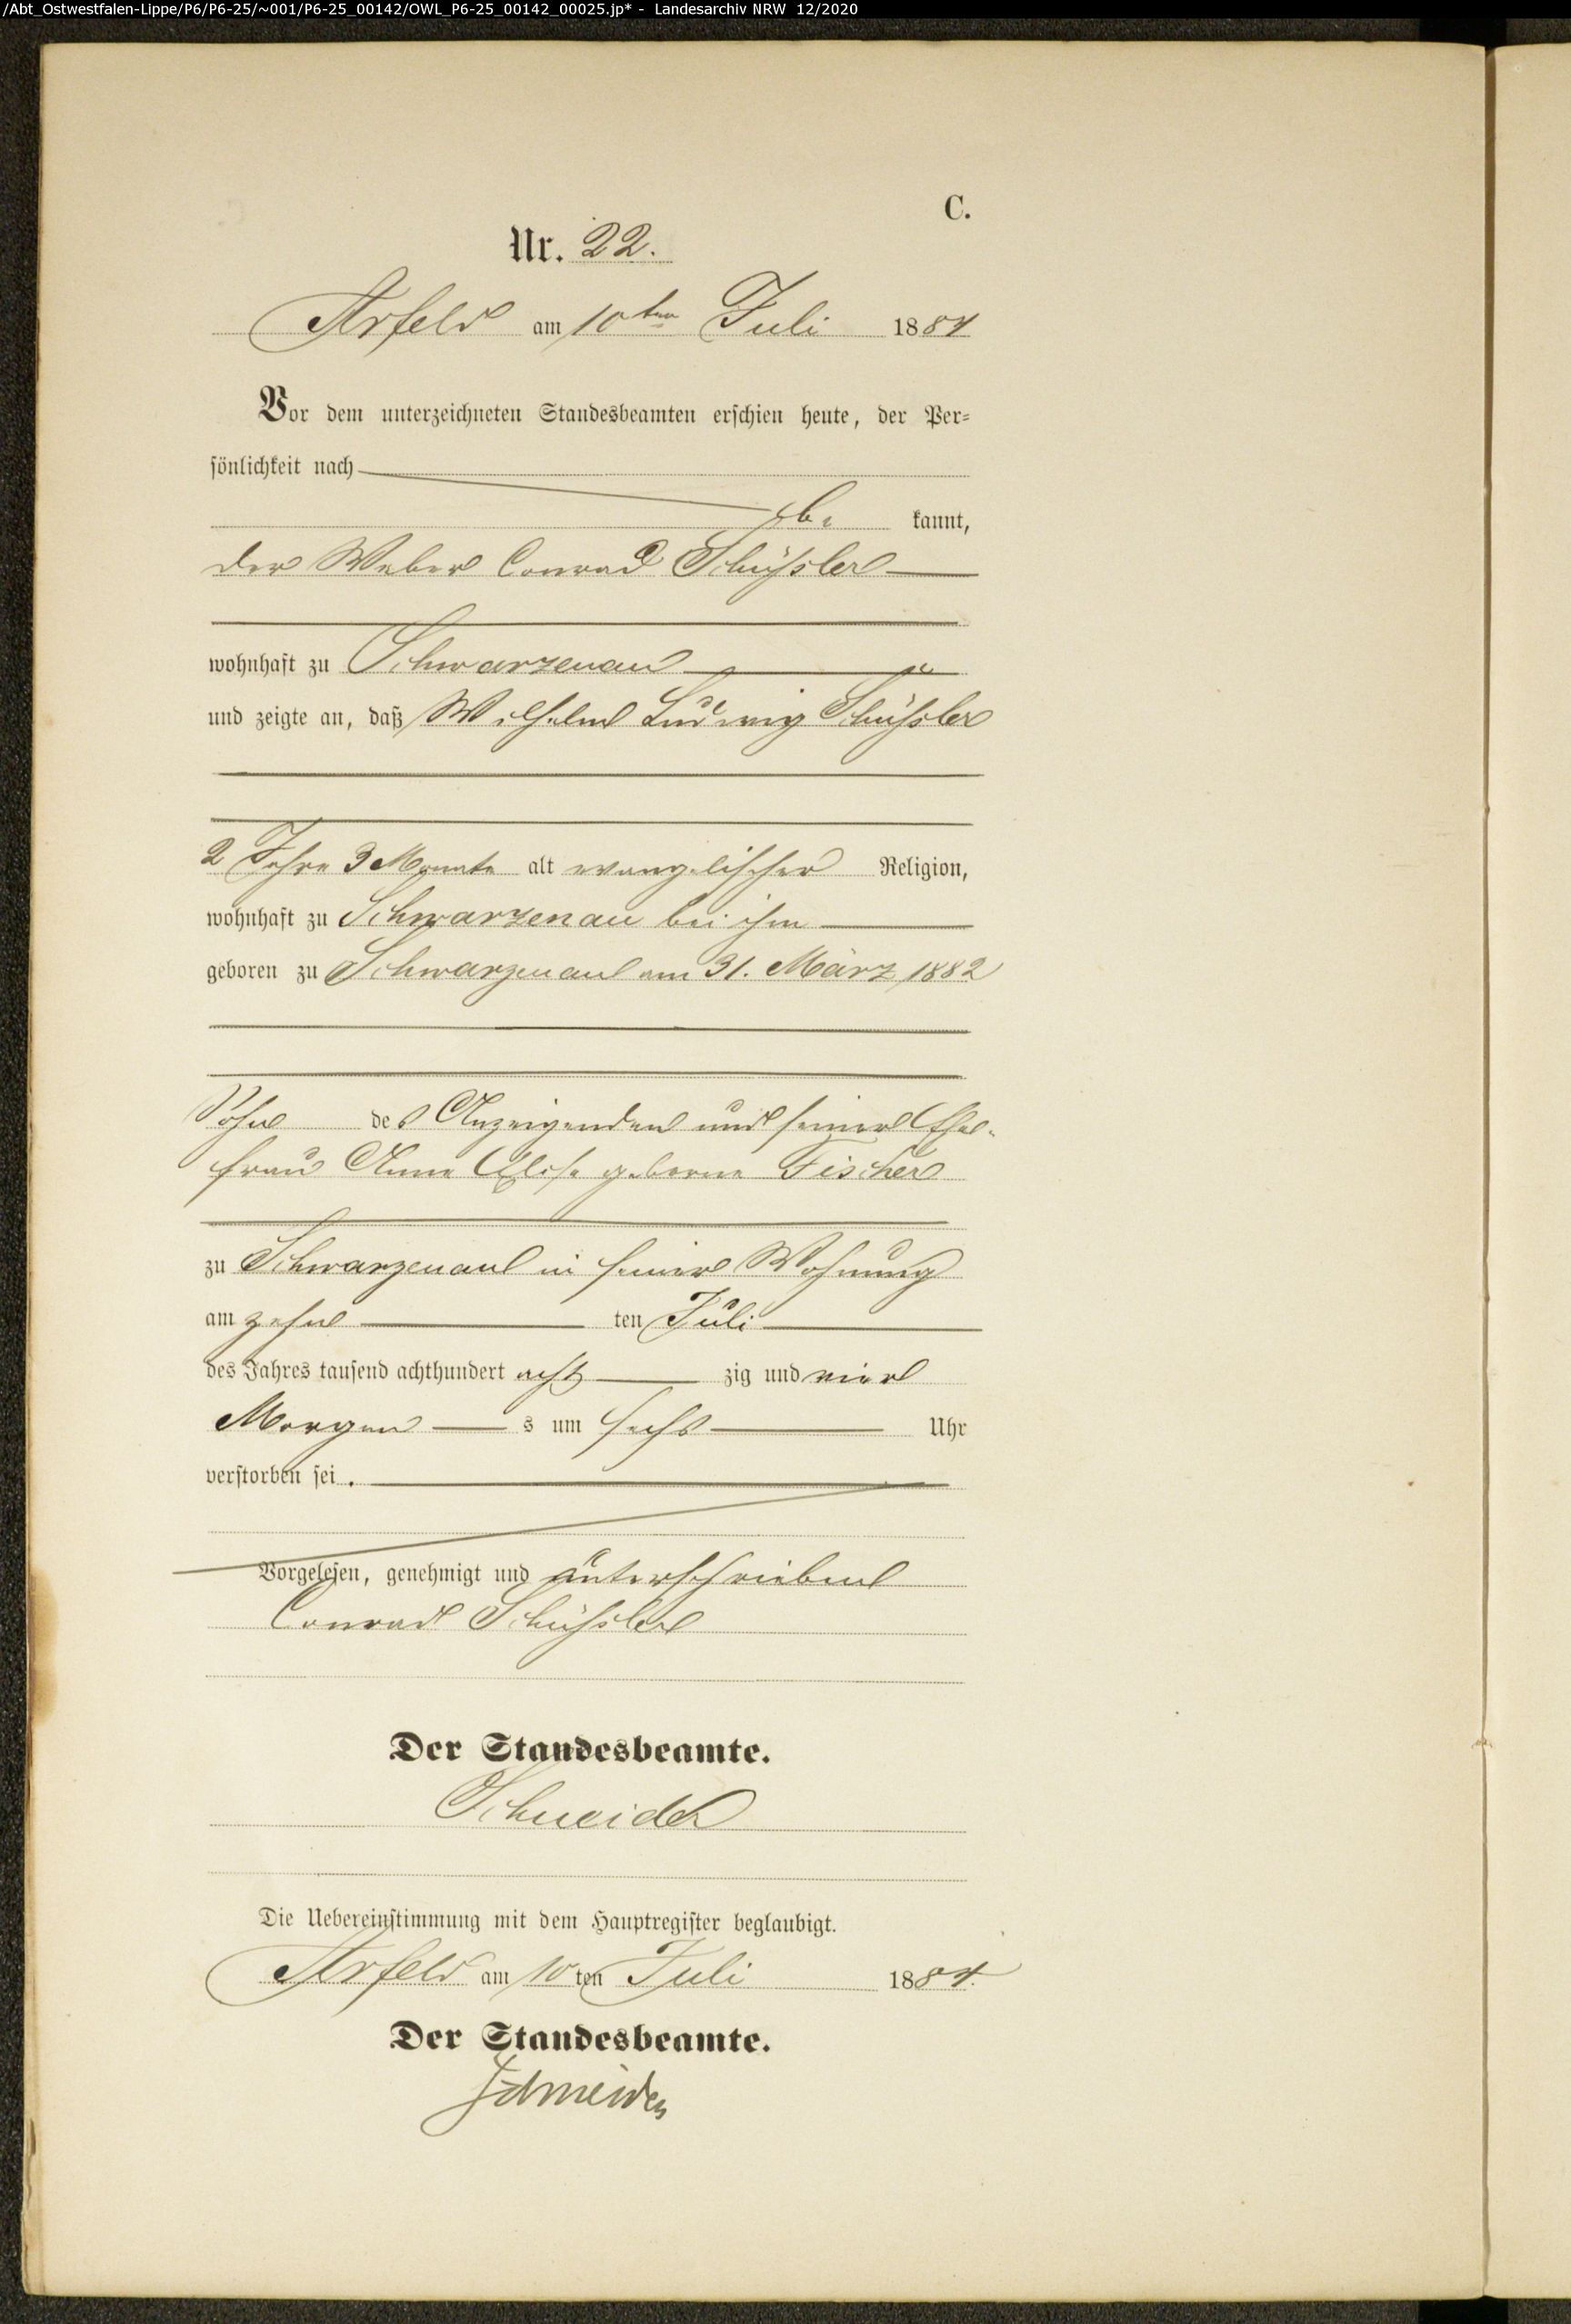 /Abt_Ostwestfalen-Lippe/P6/P6-25/~001/P6-25_00142/OWL_P6-25_00142_00025.jp* - Landesarchiv NRW 12/2020
C.
Nr. 22.
Arfeld am 10ten Juli 1884
Vor dem unterzeichneten Standesbeamten erschien heute, der Per=
sönlichkeit nach
be kannt,
der Weber Conrad Schüssler
wohnhaft zu Schwarzenau
und zeigte an, daß Wilhelm Ludwig Schüssler
2 Jahre 3 Monate alt evangelischer Religion,
wohnhaft zu Schwarzenau bei ihm
geboren zu Schwarzenau am 31. März 1882
Sohn des Anzeigenden und seiner Ehe-
frau Anna Elise geborne Fischer
zu Schwarzenau in seiner Wohnung
am zehn ten Juli
des Jahres tausend achthundert acht zig und vier
Morgen s um sechs Uhr
verstorben sei.
Vorgelesen, genehmigt und unterschrieben
Conrad Schüssler
Der Standesbeamte.
Schneider
Die Uebereinstimmung mit dem Hauptregister beglaubigt.
Arfeld am 10 ten Juli 1884.
Der Standesbeamte.
Schneider